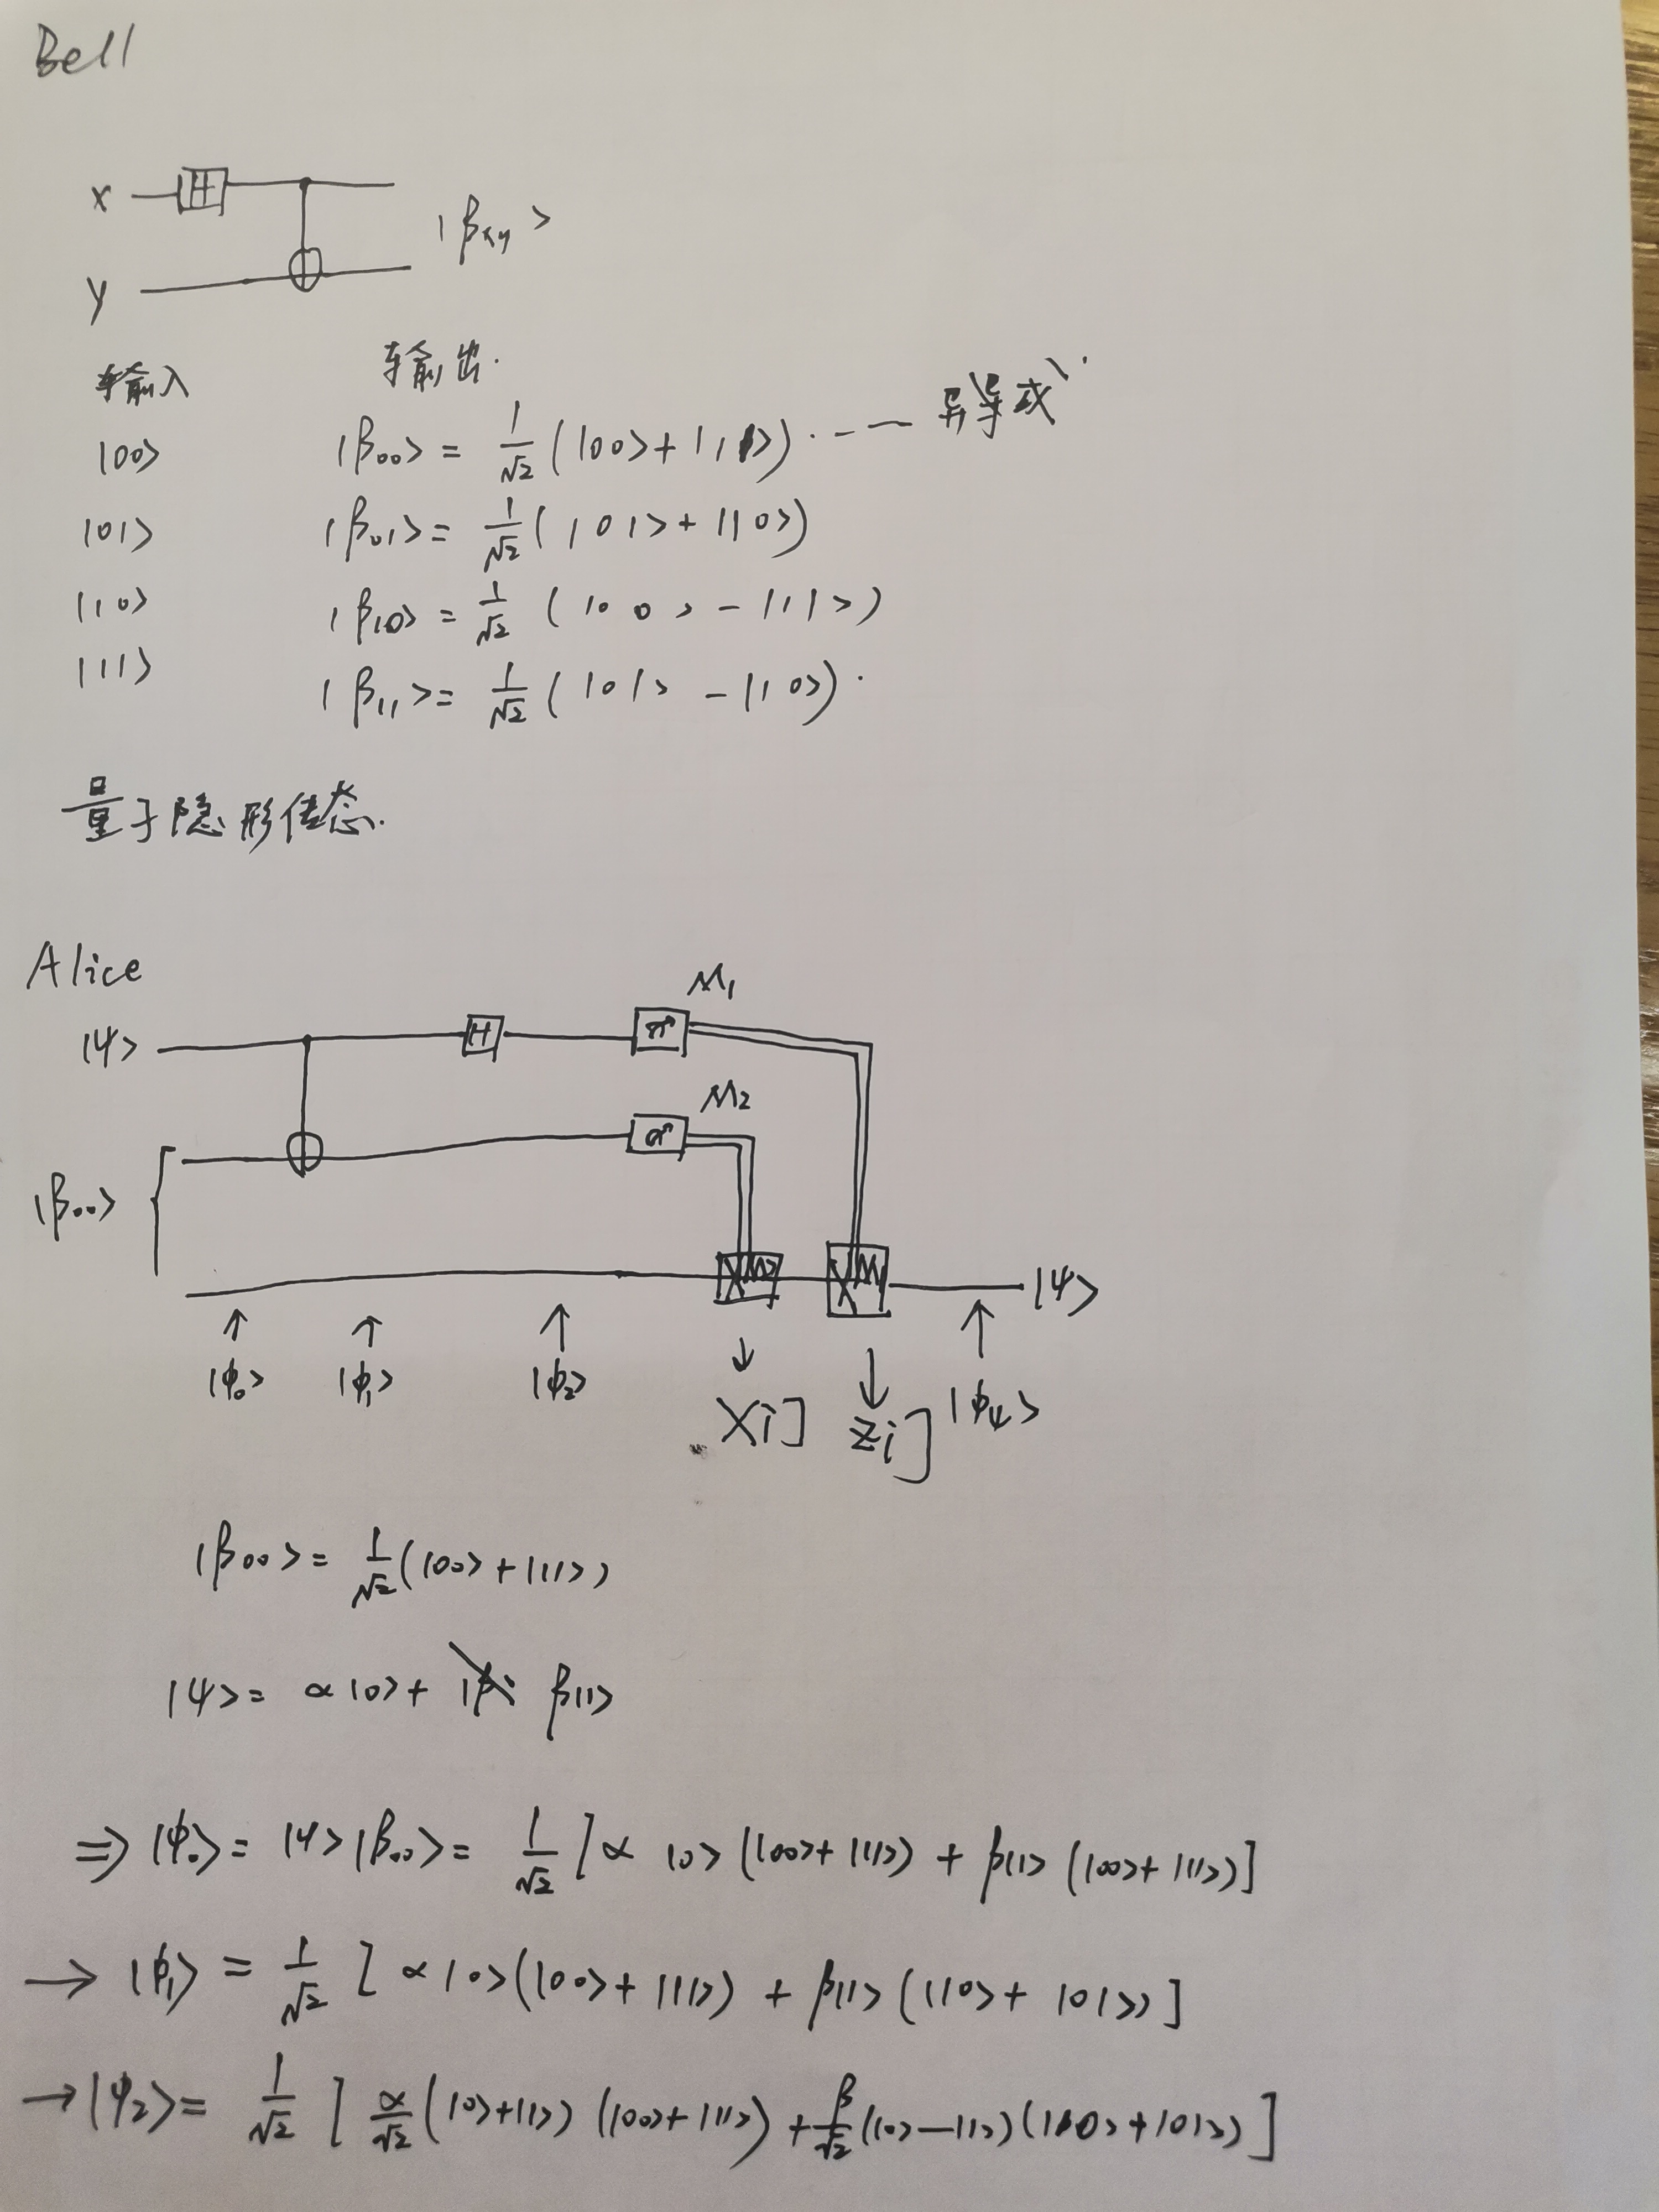 Bell
x H
|βxy>
y
输入 输出.
|00> |β00> = 1/√2 (|00> + |11>)
|01> |β01> = 1/√2 (|01> + |10>)
|10> |β10> = 1/√2 (|00> - |11>)
|11> |β11> = 1/√2 (|01> - |10>).
量子隐形传态.
Alice
M1
|ψ> H
M2
|β00>
|ψ>
|φ0> |φ1> |φ2> |φψ>
Xi] Zi]
|β00> = 1/√2 (|00> + |11>)
|ψ> = α|0> + β|1>
⇒ |φ0> = |ψ>|β00> = 1/√2 [α |0> (|00> + |11>) + β|1> (|00> + |11>)]
→ |φ1> = 1/√2 [α|0>(|00> + |11>) + β|1> (|10> + |01>)]
→ |φ2> = 1/√2 [α/√2 (|0>+|1>) (|00> + |11>) + β/√2 (|0>-|1>) (|10> + |01>)]